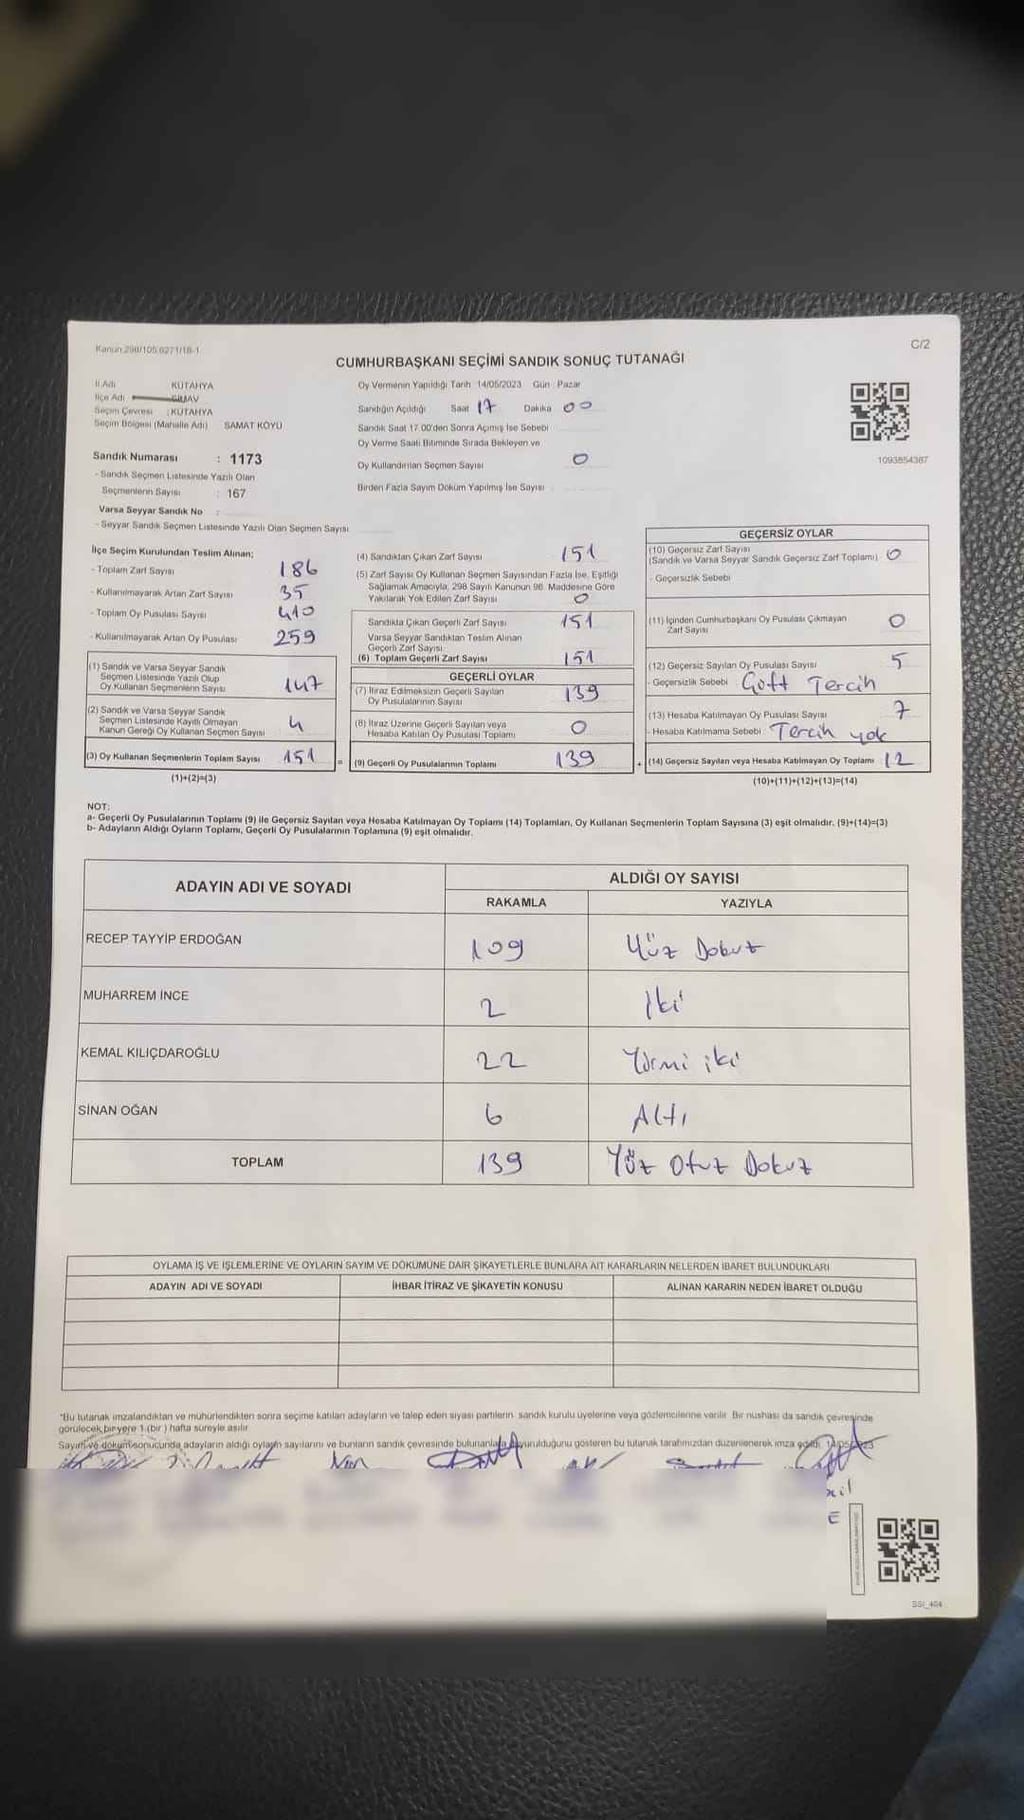 Kanun:298/105,6271/18-1
C/2
CUMHURBAŞKANI SEÇİMİ SANDIK SONUÇ TUTANAĞI
İl Adı KÜTAHYA
İlçe Adı SİMAV
Seçim Çevresi : KÜTAHYA
Seçim Bölgesi (Mahalle Adı) SAMAT KÖYÜ
Sandık Numarası : 1173
- Sandık Seçmen Listesinde Yazılı Olan
Seçmenlerin Sayısı : 167
Varsa Seyyar Sandık No :
- Seyyar Sandık Seçmen Listesinde Yazılı Olan Seçmen Sayısı
Oy Vermenin Yapıldığı Tarih 14/05/2023 Gün : Pazar
Sandığın Açıldığı Saat 17 Dakika 00
Sandık Saat 17.00'den Sonra Açımış İse Sebebi
Oy Verme Saati Bitiminde Sırada Bekleyen ve
Oy Kullandırılan Seçmen Sayısı 0
Birden Fazla Sayım Döküm Yapılmış İse Sayısı
1093854387
İlçe Seçim Kurulundan Teslim Alınan;
- Toplam Zarf Sayısı 186
- Kullanılmayarak Artan Zarf Sayısı 35
- Toplam Oy Pusulası Sayısı 410
- Kullanılmayarak Artan Oy Pusulası 259
(1) Sandık ve Varsa Seyyar Sandık
Seçmen Listesinde Yazılı Olup
Oy Kullanan Seçmenlerin Sayısı 147
(2) Sandık ve Varsa Seyyar Sandık
Seçmen Listesinde Kayıtlı Olmayan
Kanun Gereği Oy Kullanan Seçmen Sayısı 4
(3) Oy Kullanan Seçmenlerin Toplam Sayısı 151
(1)+(2)=(3)
(4) Sandıktan Çıkan Zarf Sayısı 151
(5) Zarf Sayısı Oy Kullanan Seçmen Sayısından Fazla İse, Eşitliği
Sağlamak Amacıyla, 298 Sayılı Kanunun 98. Maddesine Göre
Yakılarak Yok Edilen Zarf Sayısı 0
Sandıkta Çıkan Geçerli Zarf Sayısı 151
Varsa Seyyar Sandıktan Teslim Alınan
Geçerli Zarf Sayısı
(6) Toplam Geçerli Zarf Sayısı 151
GEÇERLİ OYLAR
(7) İtiraz Edilmeksizin Geçerli Sayılan
Oy Pusulalarının Sayısı 139
(8) İtiraz Üzerine Geçerli Sayılan veya
Hesaba Katılan Oy Pusulası Toplamı 0
= (9) Geçerli Oy Pusulalarının Toplamı 139 +
GEÇERSİZ OYLAR
(10) Geçersiz Zarf Sayısı
(Sandık ve Varsa Seyyar Sandık Geçersiz Zarf Toplamı) 0
- Geçersizlik Sebebi
(11) İçinden Cumhurbaşkanı Oy Pusulası Çıkmayan
Zarf Sayısı 0
(12) Geçersiz Sayılan Oy Pusulası Sayısı 5
- Geçersizlik Sebebi Çoft Tercih
(13) Hesaba Katılmayan Oy Pusulası Sayısı 7
- Hesaba Katılmama Sebebi : Tercih yok
(14) Geçersiz Sayılan veya Hesaba Katılmayan Oy Toplamı 12
(10)+(11)+(12)+(13)=(14)
NOT:
a- Geçerli Oy Pusulalarının Toplamı (9) ile Geçersiz Sayılan veya Hesaba Katılmayan Oy Toplamı (14) Toplamları, Oy Kullanan Seçmenlerin Toplam Sayısına (3) eşit olmalıdır. (9)+(14)=(3)
b- Adayların Aldığı Oyların Toplamı, Geçerli Oy Pusulalarının Toplamına (9) eşit olmalıdır.
ADAYIN ADI VE SOYADI
ALDIĞI OY SAYISI
RAKAMLA YAZIYLA
RECEP TAYYİP ERDOĞAN 109 Yüz Dokuz
MUHARREM İNCE 2 İki
KEMAL KILIÇDAROĞLU 22 Yirmi iki
SİNAN OĞAN 6 Altı
TOPLAM 139 Yüz Otuz Dokuz
OYLAMA İŞ VE İŞLEMLERİNE VE OYLARIN SAYIM VE DÖKÜMÜNE DAİR ŞİKAYETLERLE BUNLARA AİT KARARLARIN NELERDEN İBARET BULUNDUKLARI
ADAYIN ADI VE SOYADI İHBAR İTİRAZ VE ŞİKAYETİN KONUSU ALINAN KARARIN NEDEN İBARET OLDUĞU
*Bu tutanak imzalandıktan ve mühürlendikten sonra seçime katılan adayların ve talep eden siyasi partilerin sandık kurulu üyelerine veya gözlemcilerine verilir. Bir nüshası da sandık çevresinde
görülecek bir yere 1 (bir) hafta süreyle asılır.
Sayım ve döküm sonucunda adayların aldığı oyların sayılarını ve bunların sandık çevresinde bulunanlara duyurulduğunu gösteren bu tutanak tarafımızdan düzenlenerek imza edildi. 14/05/2023
E
SSI_404